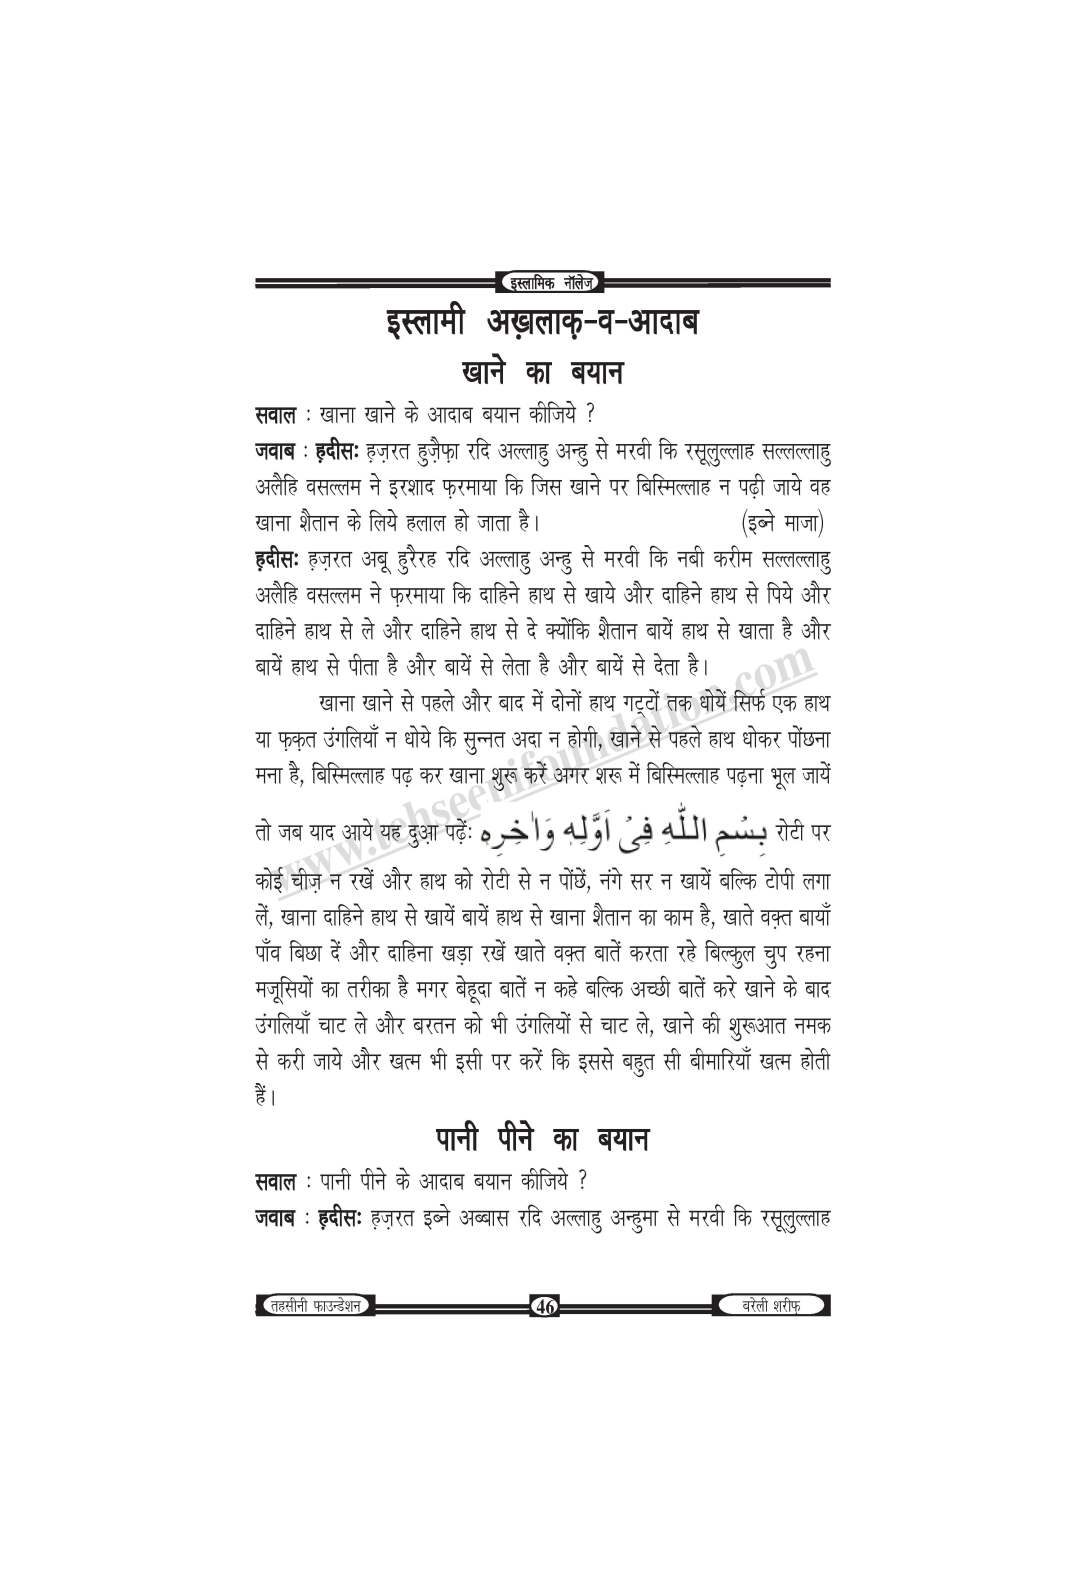 इस्लामिक नॉलेज
इस्लामी अख़लाक़-व-आदाब
खाने का बयान
सवाल : खाना खाने के आदाब बयान कीजिये ?
जवाब : ह़दीसः ह़ज़रत हुज़ैफ़ा रदि अल्लाहु अन्हु से मरवी कि रसूलुल्लाह सल्लल्लाहु
अलैहि वसल्लम ने इरशाद फ़रमाया कि जिस खाने पर बिस्मिल्लाह न पढ़ी जाये वह
खाना शैतान के लिये हलाल हो जाता है। (इब्ने माजा)
ह़दीसः हज़रत अबू हुरैरह रदि अल्लाहु अन्हु से मरवी कि नबी करीम सल्लल्लाहु
अलैहि वसल्लम ने फ़रमाया कि दाहिने हाथ से खाये और दाहिने हाथ से पिये और
दाहिने हाथ से ले और दाहिने हाथ से दे क्योंकि शैतान बायें हाथ से खाता है और
बायें हाथ से पीता है और बायें से लेता है और बायें से देता है।
खाना खाने से पहले और बाद में दोनों हाथ गट्टों तक धोयें सिर्फ एक हाथ
या फ़क़त उंगलियाँ न धोये कि सुन्नत अदा न होगी, खाने से पहले हाथ धोकर पोंछना
मना है, बिस्मिल्लाह पढ़ कर खाना शुरू करें अगर शरू में बिस्मिल्लाह पढ़ना भूल जायें
तो जब याद आये यह दुआ़ पढ़ें: بِسْمِ اللّٰهِ فِیْ اَوَّلِهٖ وَاٰخِرِهٖ रोटी पर
कोई चीज़ न रखें और हाथ को रोटी से न पोंछें, नंगे सर न खायें बल्कि टोपी लगा
लें, खाना दाहिने हाथ से खायें बायें हाथ से खाना शैतान का काम है, खाते वक़्त बायाँ
पाँव बिछा दें और दाहिना खड़ा रखें खाते वक़्त बातें करता रहे बिल्कुल चुप रहना
मजूसियों का तरीका है मगर बेहूदा बातें न कहे बल्कि अच्छी बातें करे खाने के बाद
उंगलियाँ चाट ले और बरतन को भी उंगलियों से चाट ले, खाने की शुरूआत नमक
से करी जाये और खत्म भी इसी पर करें कि इससे बहुत सी बीमारियाँ खत्म होती
हैं।
पानी पीने का बयान
सवाल : पानी पीने के आदाब बयान कीजिये ?
जवाब : ह़दीसः हज़रत इब्ने अब्बास रदि अल्लाहु अन्हुमा से मरवी कि रसूलुल्लाह
www.tehseenifoundation.com
तहसीनी फाउन्डेशन 46 बरेली शरीफ़